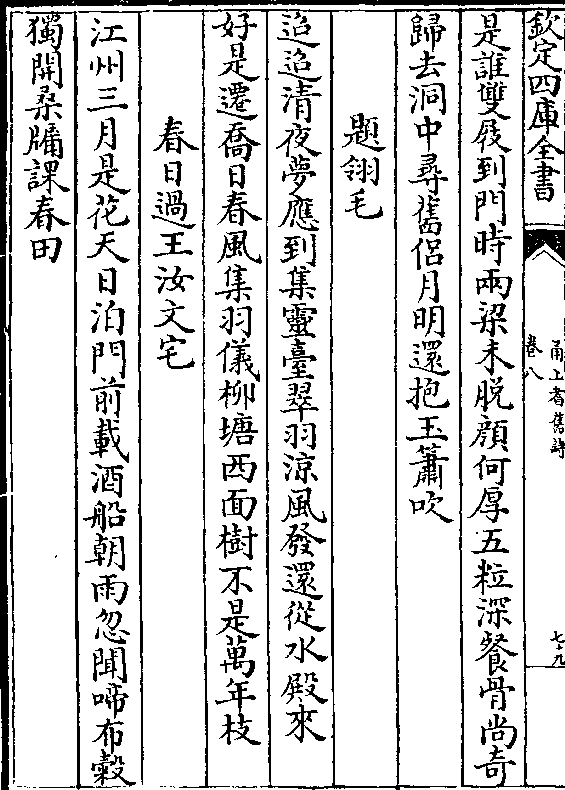 欽定四庫全書
甬上耆舊詩
卷八
七十九
是誰雙屐到門時兩梁未脫顔何厚五粒深餐骨尚奇
歸去洞中尋舊侣月明還抱玉簫吹
題翎毛
迢迢清夜夢應到集靈臺翠羽涼風發還從水殿來
好是遷喬日春風集羽儀柳塘西面樹不是萬年枝
春日過王汝文宅
江州三月是花天日泊門前載酒船朝雨忽聞啼布穀
獨開桑牖課春田